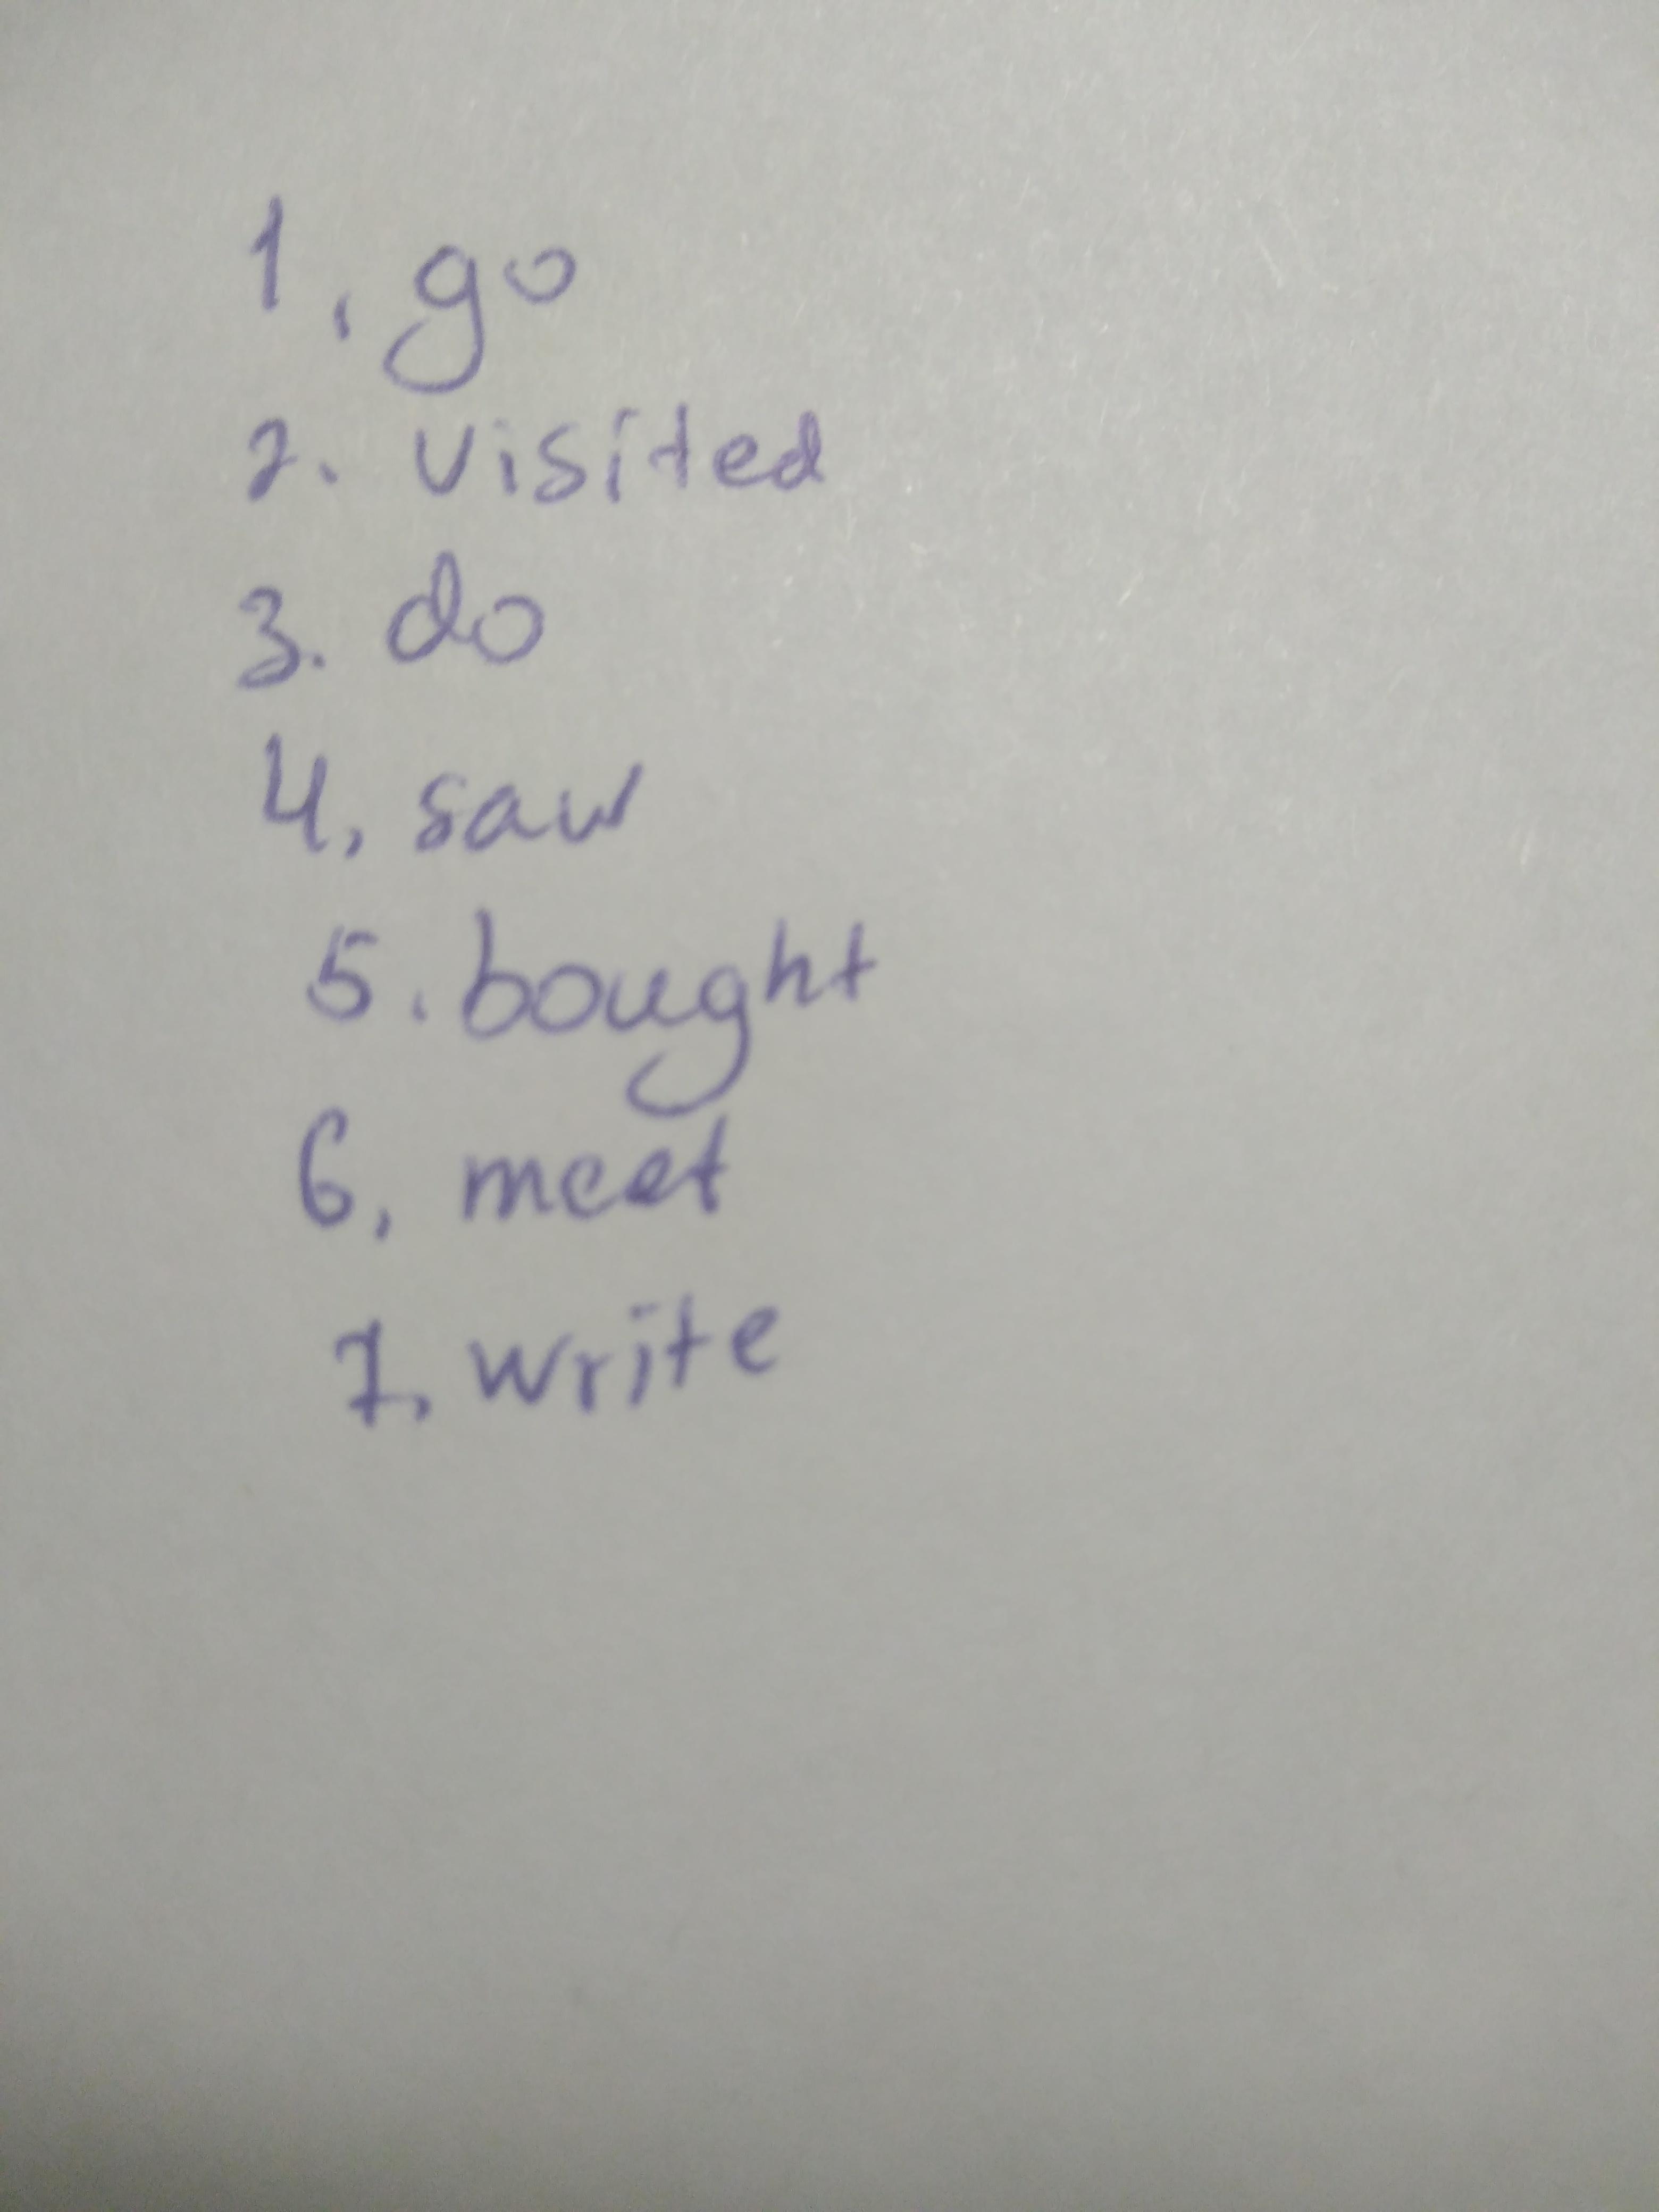 1. go
2. visited
3. do
4. saw
5. bought
6. meet
7. write